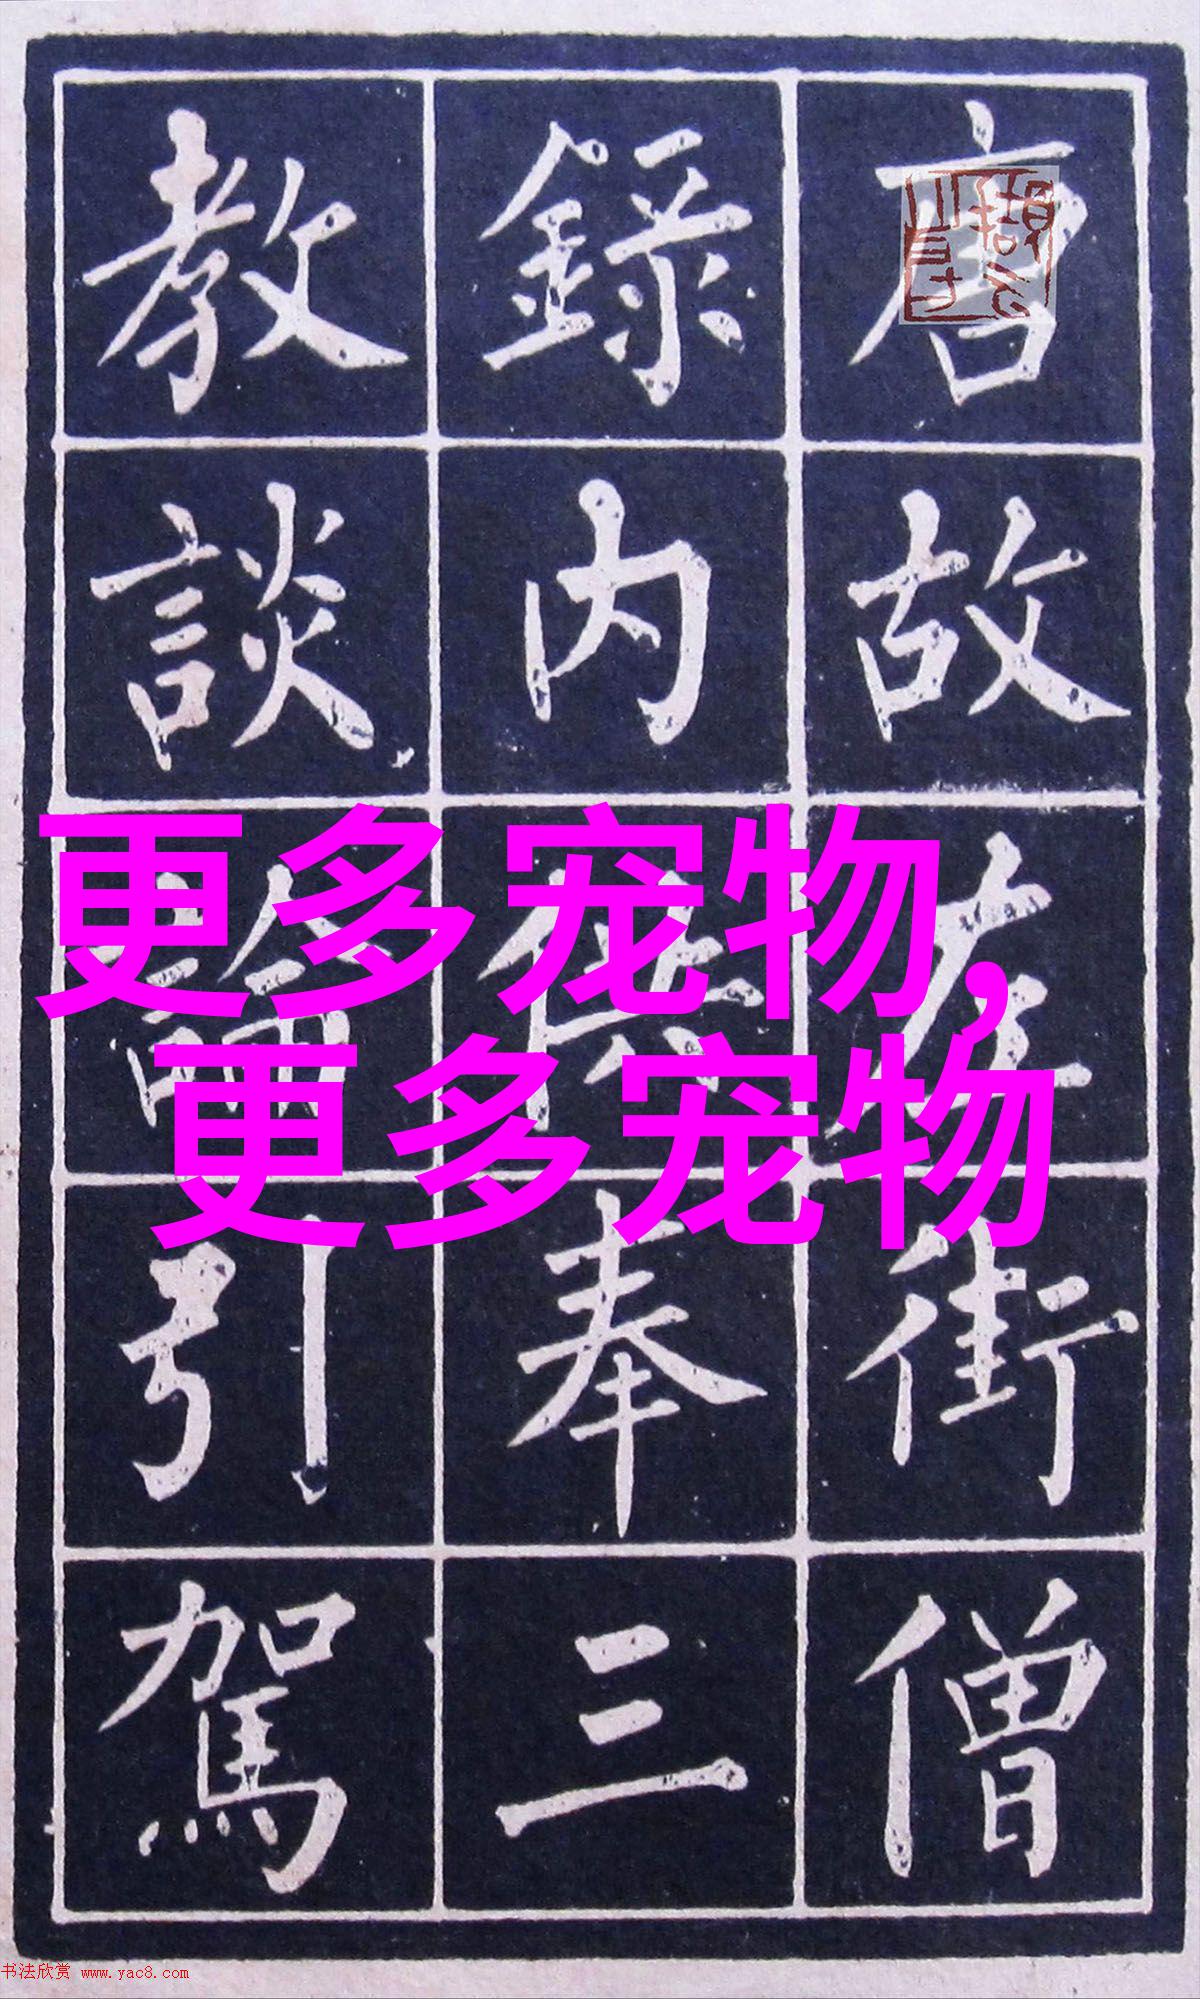 唐故左街僧
録内供奉三
教談論引駕
更多宠物,
更多宠物
书法欣赏 www.yac8.com